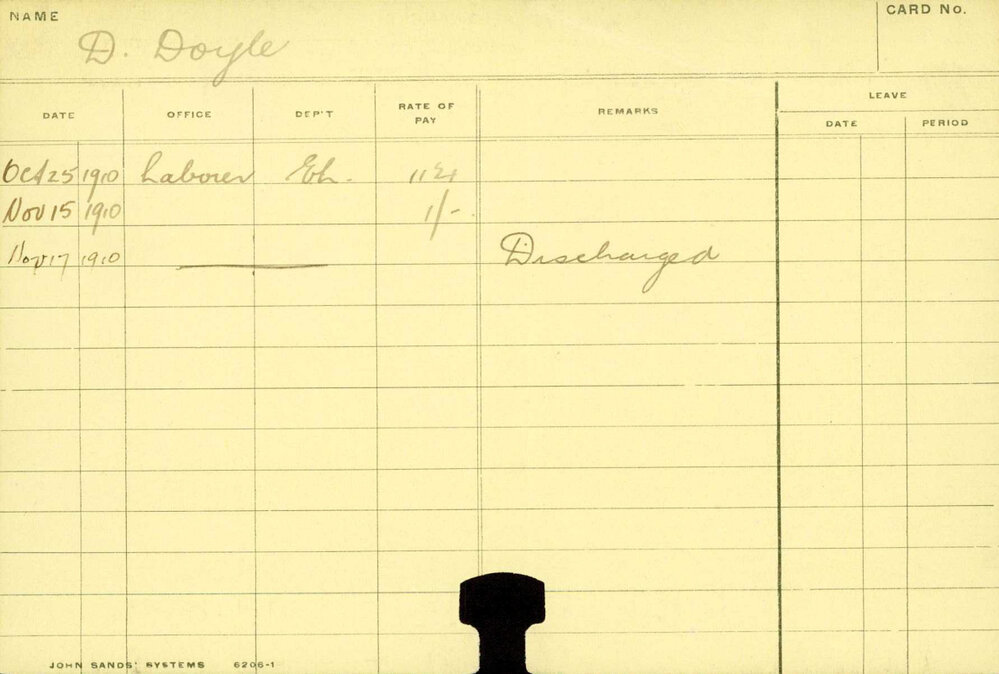 NAME
CARD No.
D. Doyle
DATE OFFICE DEP'T RATE OF PAY REMARKS LEAVE
DATE PERIOD
Oct 25 1910 Laborer Eh.
Nov 15 1910 1/-
Nov 17 1910 Discharged
JOHN SANDS' SYSTEMS 6206-1